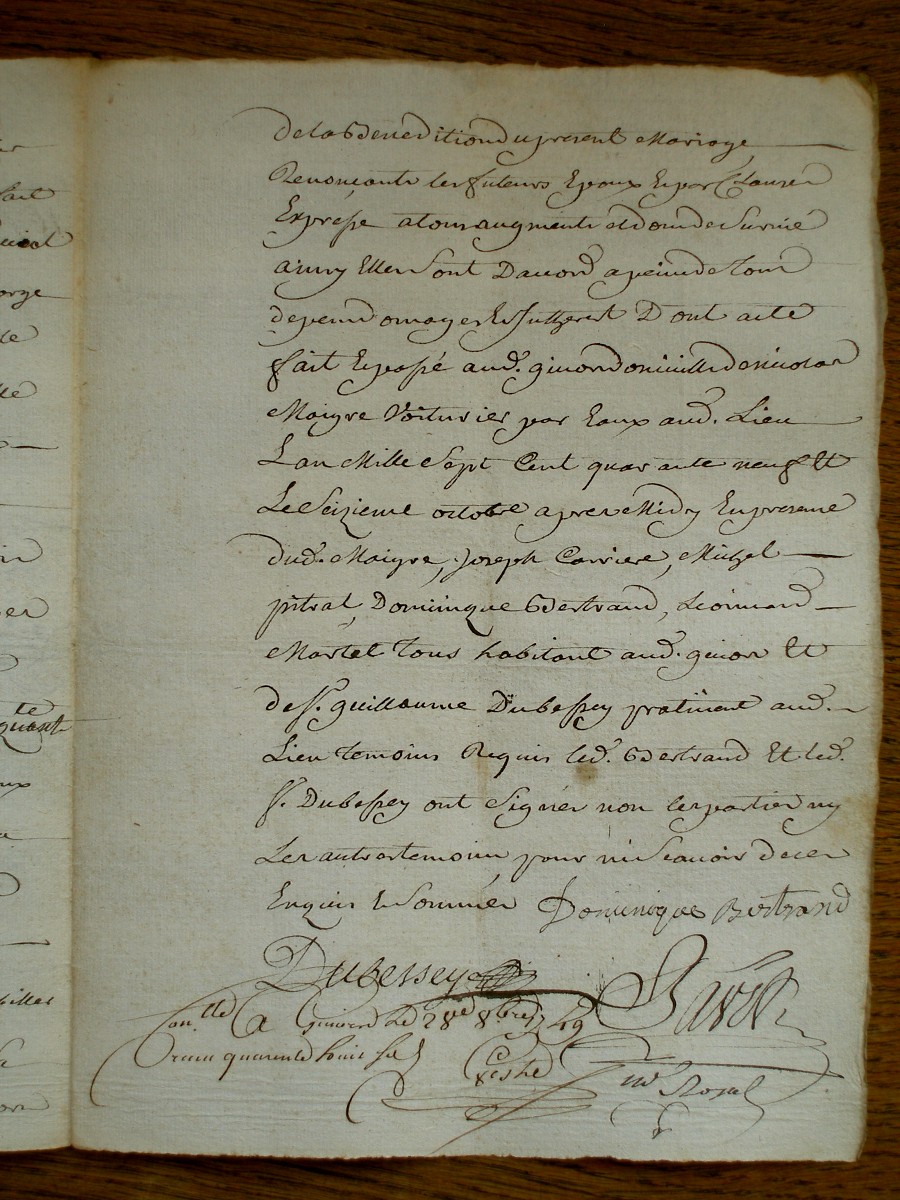 de la Benedition du present Mariage
Renonçants les futurs Epoux Expar Clause
Expresse a tous augments et dons de Survie
ainsy Elles Sont Daccord a peine de tous
depens domages Et Jntherest Dont acte
fait Et passé aud. givors domicille de nicolas
Maigre Voiturier par Eaux aud. Lieu
L an Mille Sept Cent quarante neuf Et
Le Seizieme octobre apres Midy En presence
dud. Maigre, Joseph Carriere, Michel
pitrat, Dominique Bertrand, Leonnard
Martel tous habitant aud. givors Et
de Sr. guillaume Dubessey pratitient aud.
Lieu temoins Requis led. Bertrand Et led.
Sr. Dubessey ont Signés non les parties ny
Les autres temoins pour ne Scavoir de ce
Enquis Et Sommés Dominique Bertrand
Dubessey
Con.lle A Givors Le 28 8bre 1749
quarente huit
nre Royal